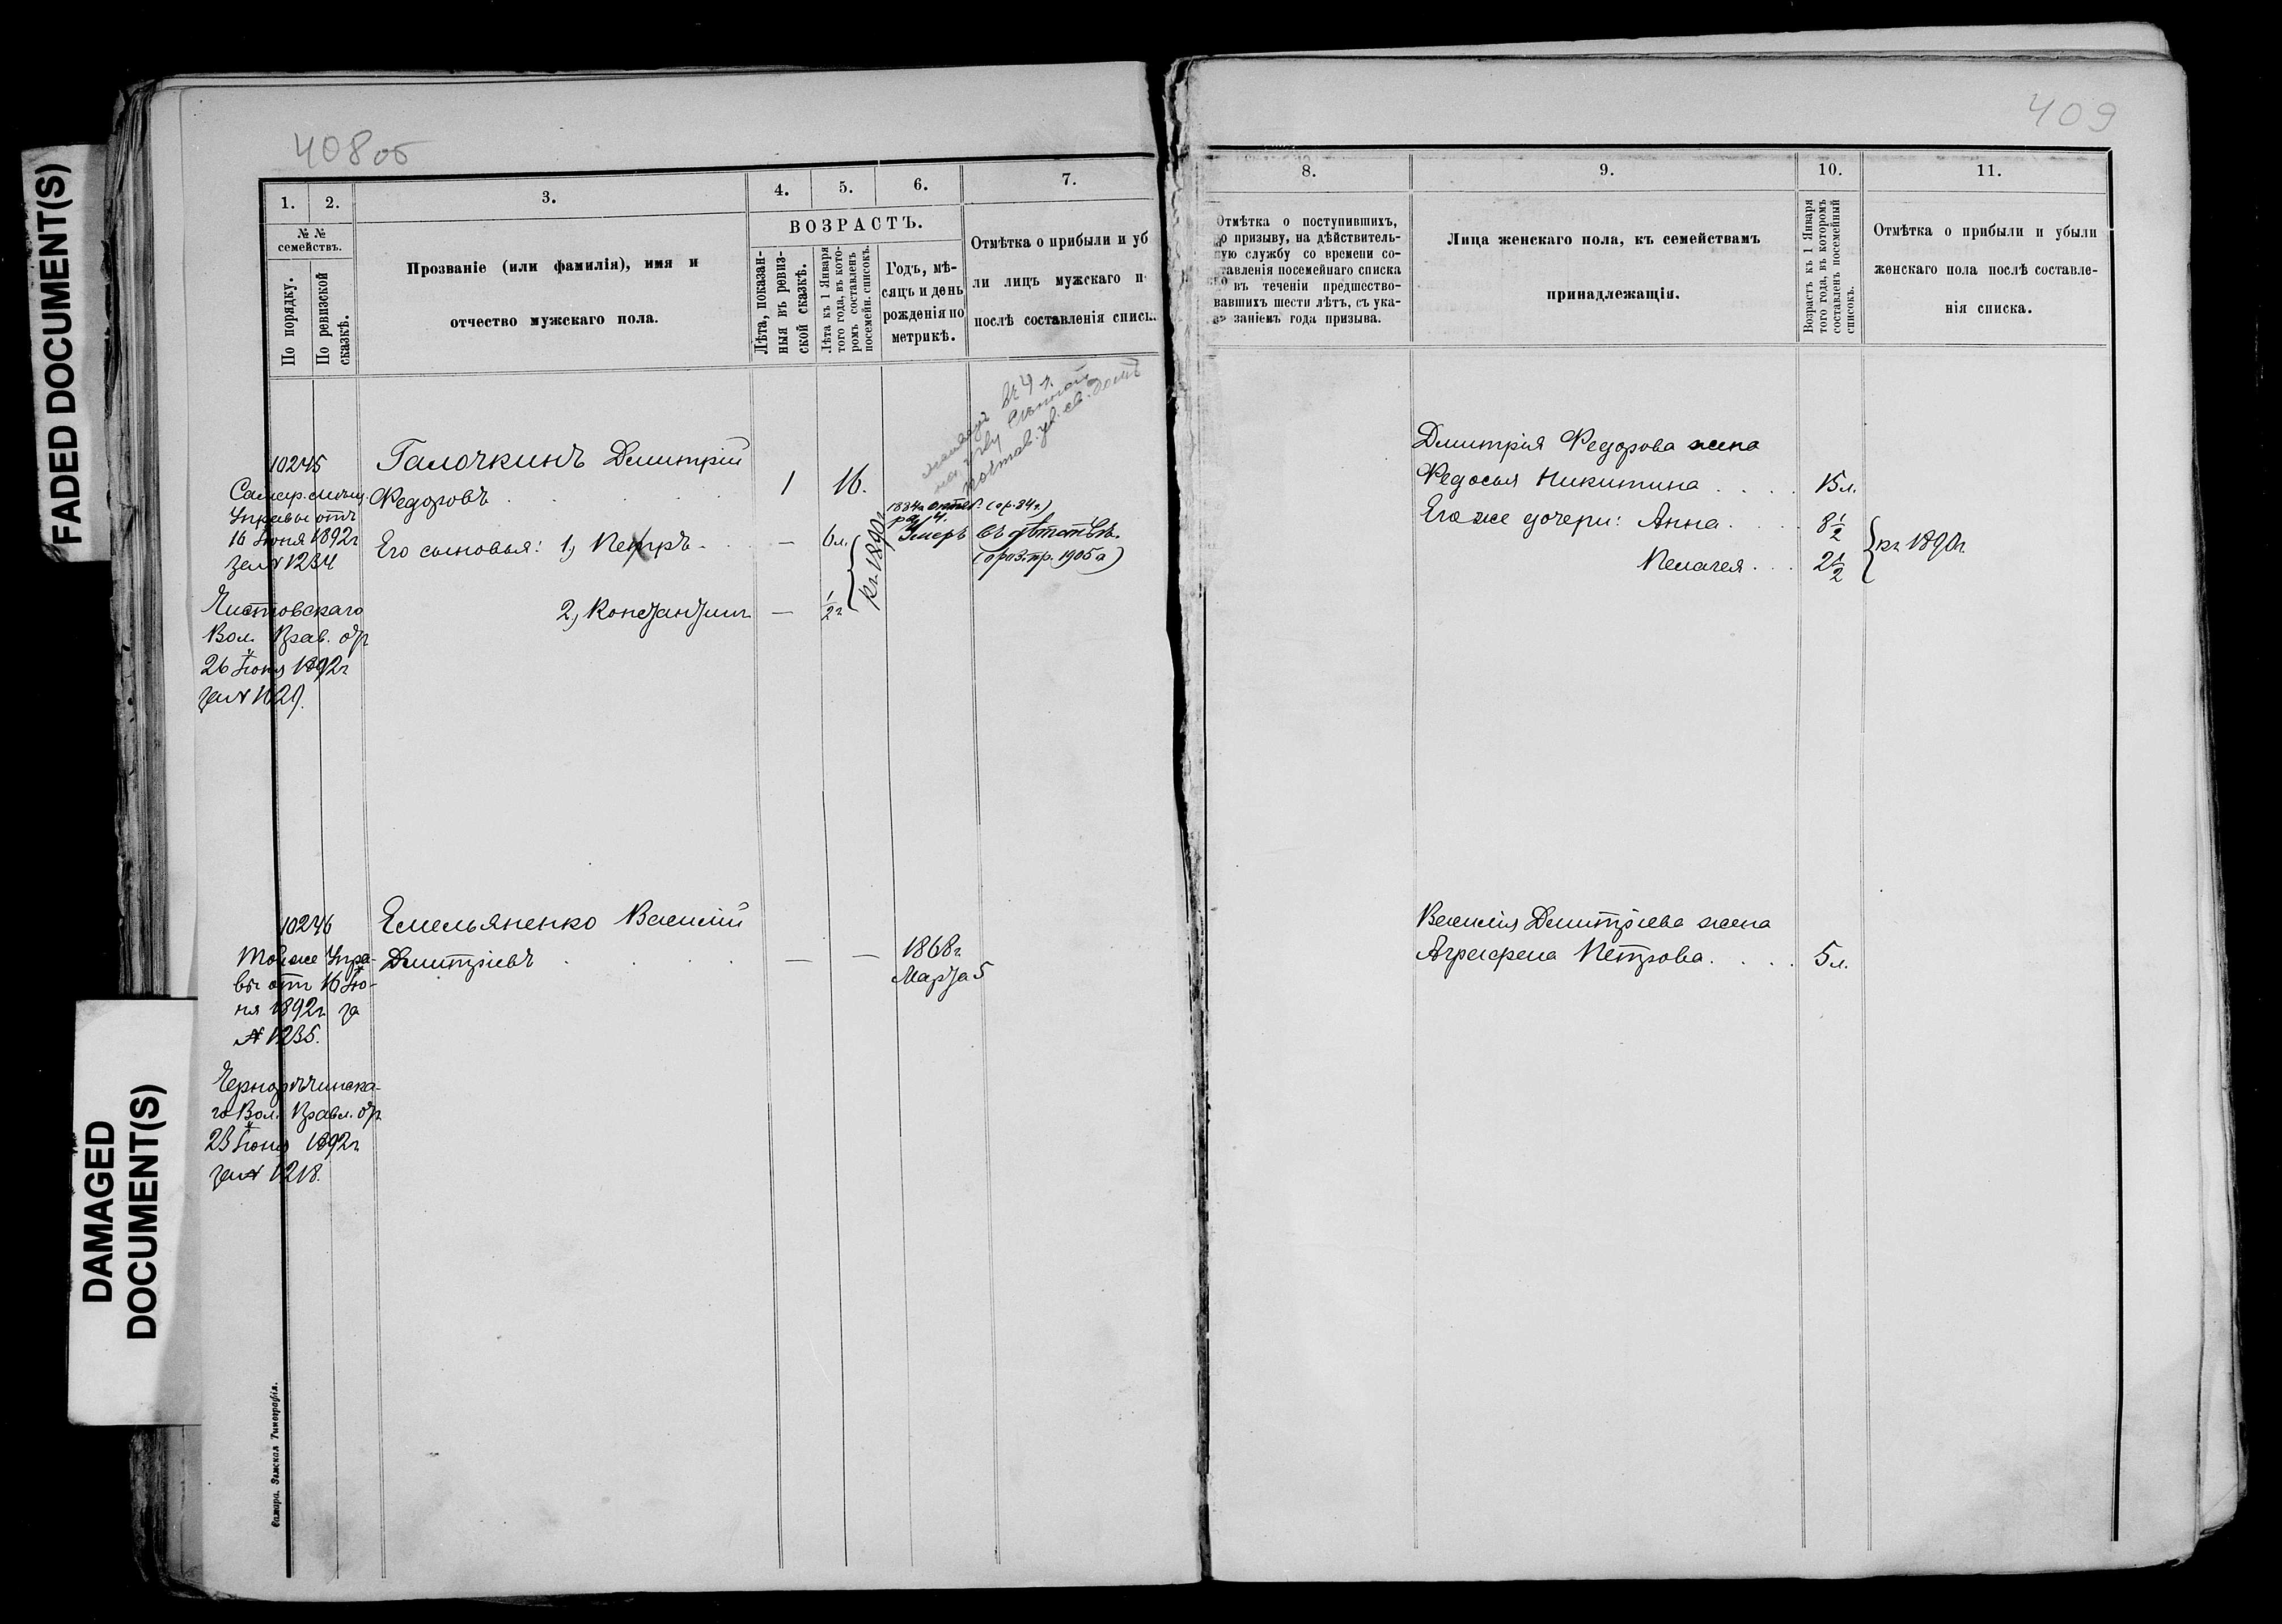 FADED DOCUMENT(S)
DAMAGED
DOCUMENT(S)
408 об
1.
2.
3.
4.
5.
6.
7.
№ №
семействъ.
По порядку.
По ревизской
сказкѣ.
Прозваніе (или фамилія), имя и
отчество мужскаго пола.
ВОЗРАСТЪ.
Лѣта, показан-
ныя въ ревиз-
ской сказкѣ.
Лѣта къ 1 Января
того года, въ кото-
ромъ составленъ
посемейн. списокъ.
Годъ, мѣ-
сяцъ и день
рожденія по
метрикѣ.
Отмѣтка о прибыли и уб
ли лицъ мужскаго п
послѣ составленія списк
10245
Самар. мѣщ.
Управы отъ
16 Іюня 1892г
за № 1234
Чистовскаго
Вол. Прав. от
26 Іюня 1892г
за № 1629.
Галочкинъ Дмитрій
Федоровъ
1
16.
Его сыновья: 1, Петръ
—
6 л.
2, Константинъ
—
1/2 г
къ 1890г.
1884г. октяб.
Умеръ въ дѣтствѣ.
1905 г)
10246
Той же Упра-
вы отъ 16 Ію-
ня 1892г за
№ 1235.
Чернорѣчинска-
го Вол. Правл. от
23 Іюня 1892г
за № 1218.
Емельяненко Василій
Дмитріевъ
—
—
1868г.
Марта 5
Самара. Земская Типографія.
409
8.
9.
10.
11.
Отмѣтка о поступившихъ,
по призыву, на дѣйствитель-
ную службу со времени со-
ставленія посемейнаго списка
въ теченіи предшество-
вавшихъ шести лѣтъ, съ ука-
заніемъ года призыва.
Лица женскаго пола, къ семействамъ
принадлежащія.
Возрастъ къ 1 Января
того года, въ которомъ
составленъ посемейный
списокъ.
Отмѣтка о прибыли и убыли
женскаго пола послѣ составле-
нія списка.
Дмитрія Федорова жена
Федосья Никитина
15 л.
Его же дочери: Анна
8 1/2
Пелагея
2 1/2
къ 1890г.
Василія Дмитріева жена
Аграфена Петрова
5 л.